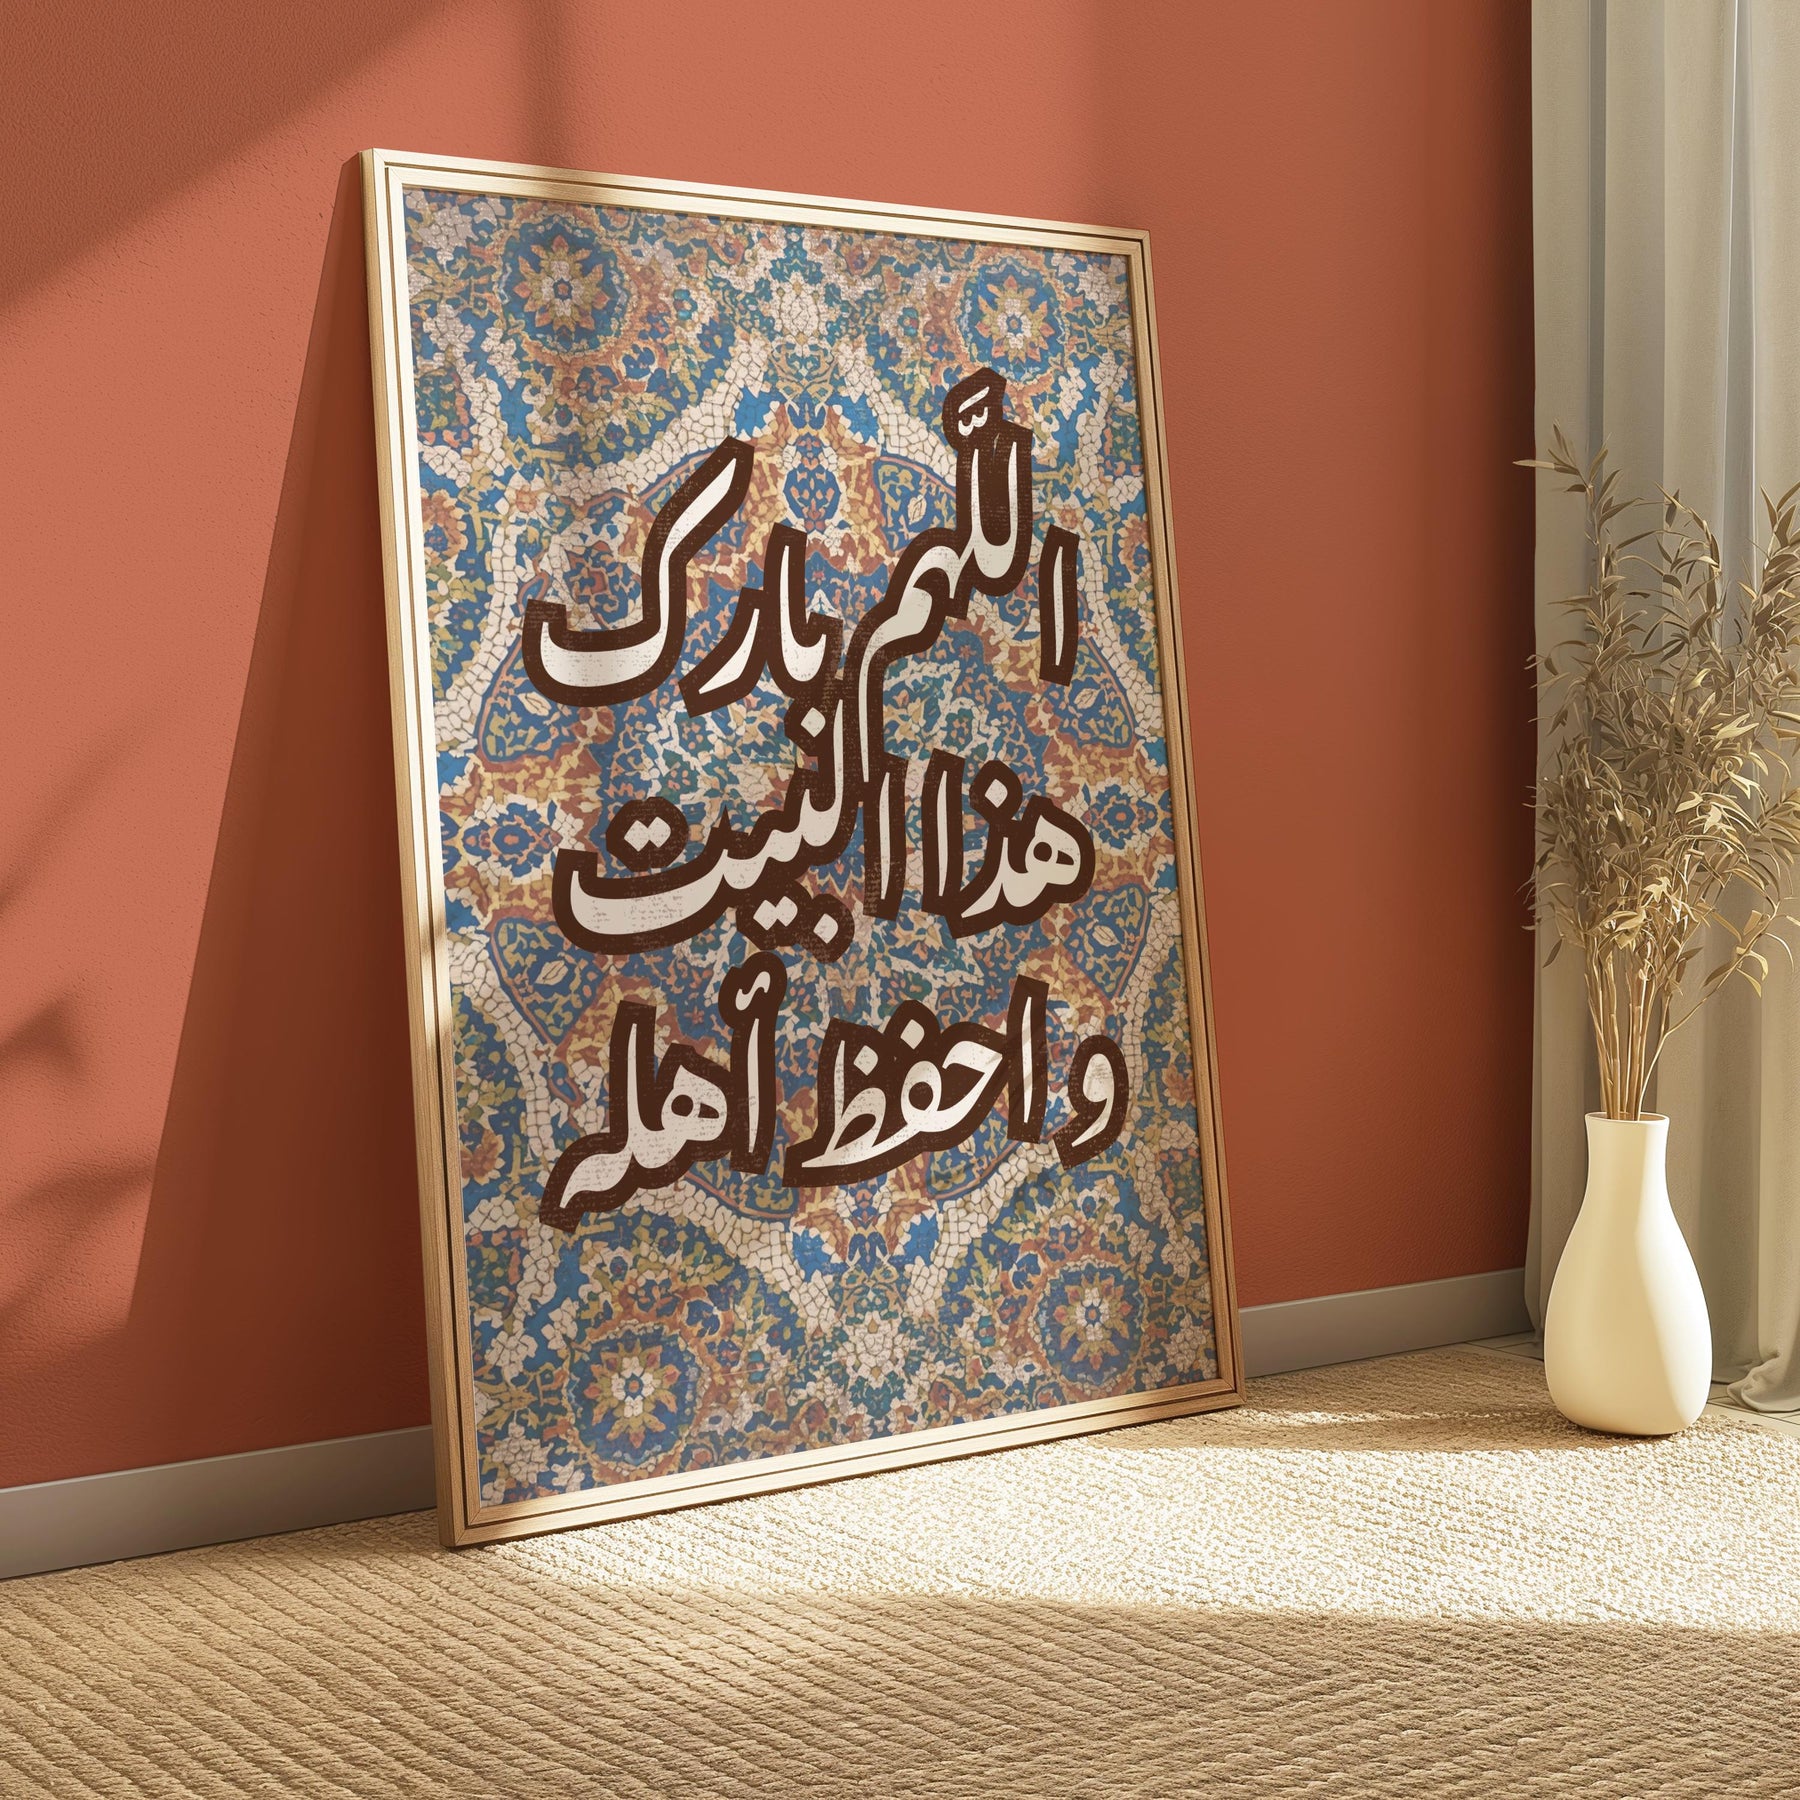 اللَّهم بارك
هذا البيت
واحفظ أهله